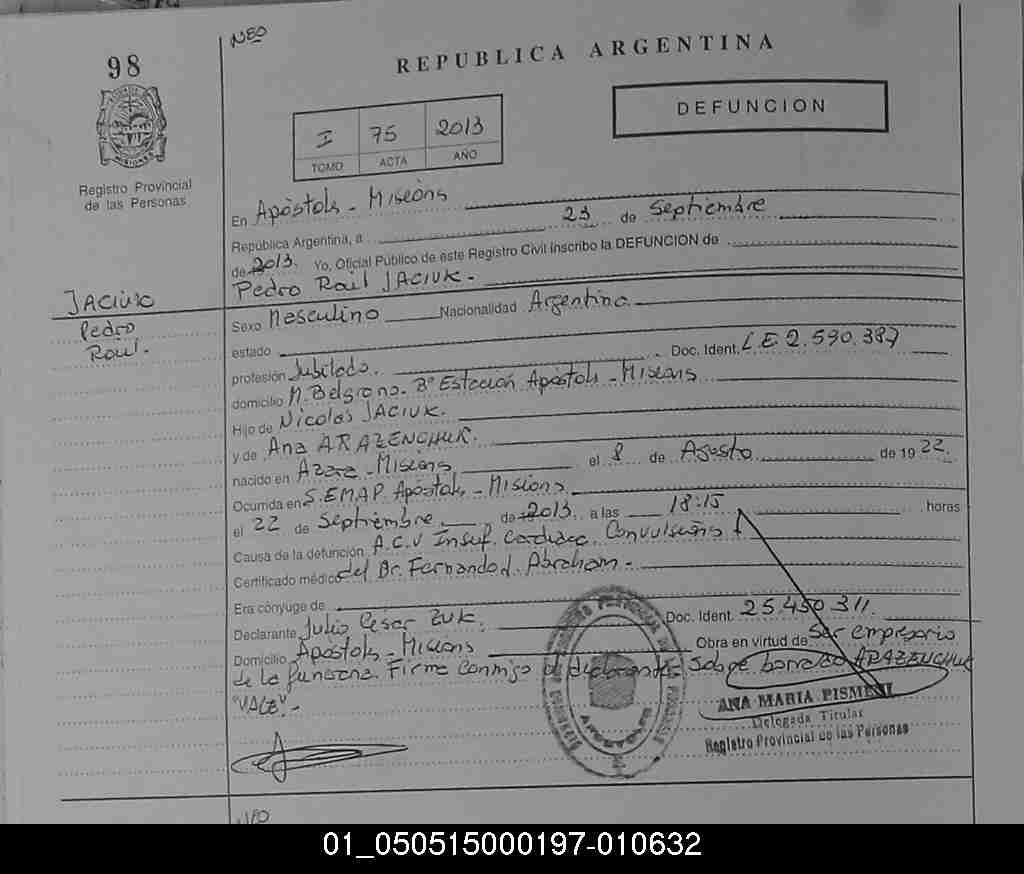 98
NEO
REPUBLICA ARGENTINA
DEFUNCION
I 75 2013
TOMO ACTA AÑO
Registro Provincial
de las Personas
En Apóstols - Misions
República Argentina, a 23 de Septiembre
de 2013. Yo, Oficial Público de este Registro Civil inscribo la DEFUNCION de
Pedro Raúl JACIUK.-
JACIUK
Pedro
Raul.
Sexo Masculino Nacionalidad Argentino
estado
profesión Jubilado. Doc. Ident. L E 2.590.387
domicilio M. Belgrano. Bº Estación Apóstols - Misions
Hijo de Nicolás JACIUK.
y de Ana ARAZENCHUK.
nacido en Azara - Misions el 8 de Agosto de 19 22.
Ocurrida en S.EMAP. Apóstols - Misions
el 22 de Septiembre de 2013 a las 18:15 horas
Causa de la defunción A.C.V Insuf. Cardiaca. Convulsions
Certificado médico del Dr. Fernando J. Abraham.-
Era cónyuge de
Declarante Julio César ZUK. Doc. Ident. 25.450.311.
Domicilio Apóstols - Misions Obra en virtud de Ser empresario
de la funeraria. Firma conmigo el declarante. Sobre borrado ARAZENCHUK
"VALE".-
ANA MARIA PISMENI
Delegada Titular
Registro Provincial de las Personas
NEO
01_050515000197-010632